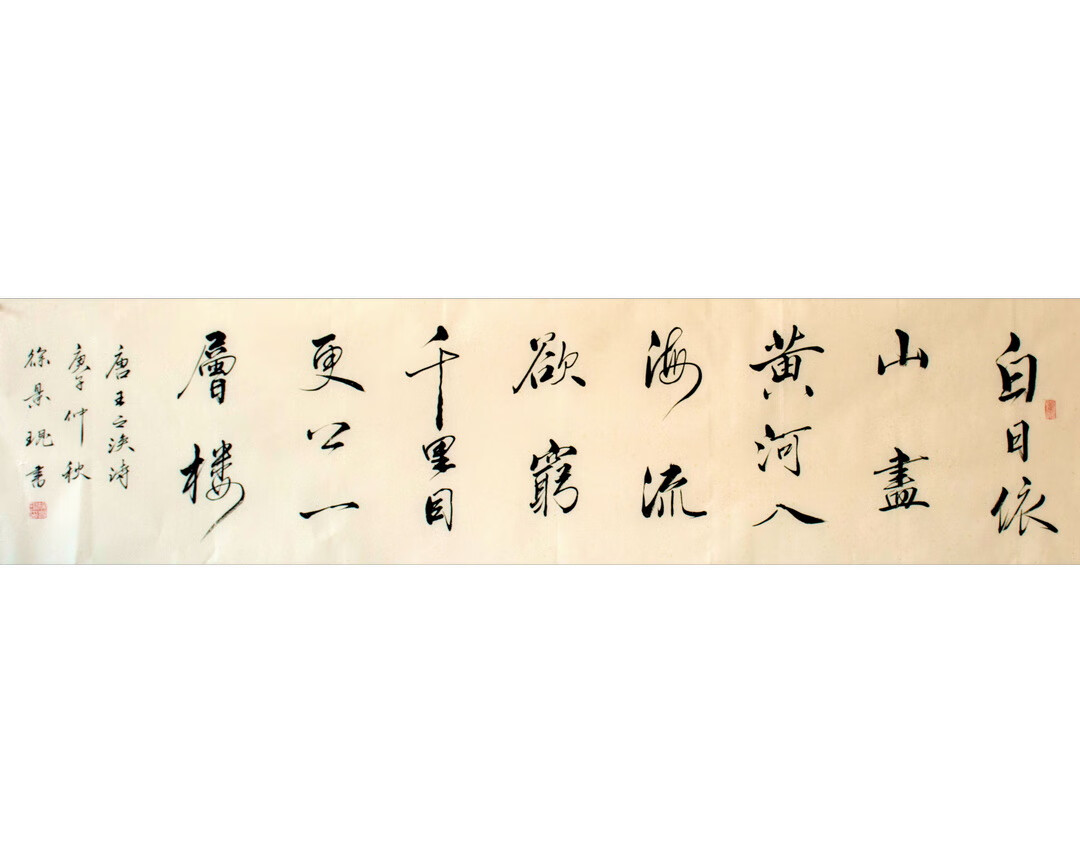 白日依
山盡
黄河入
海流
欲窮
千里目
更上一
層楼
唐王之涣诗
庚子仲秋
徐景琨書